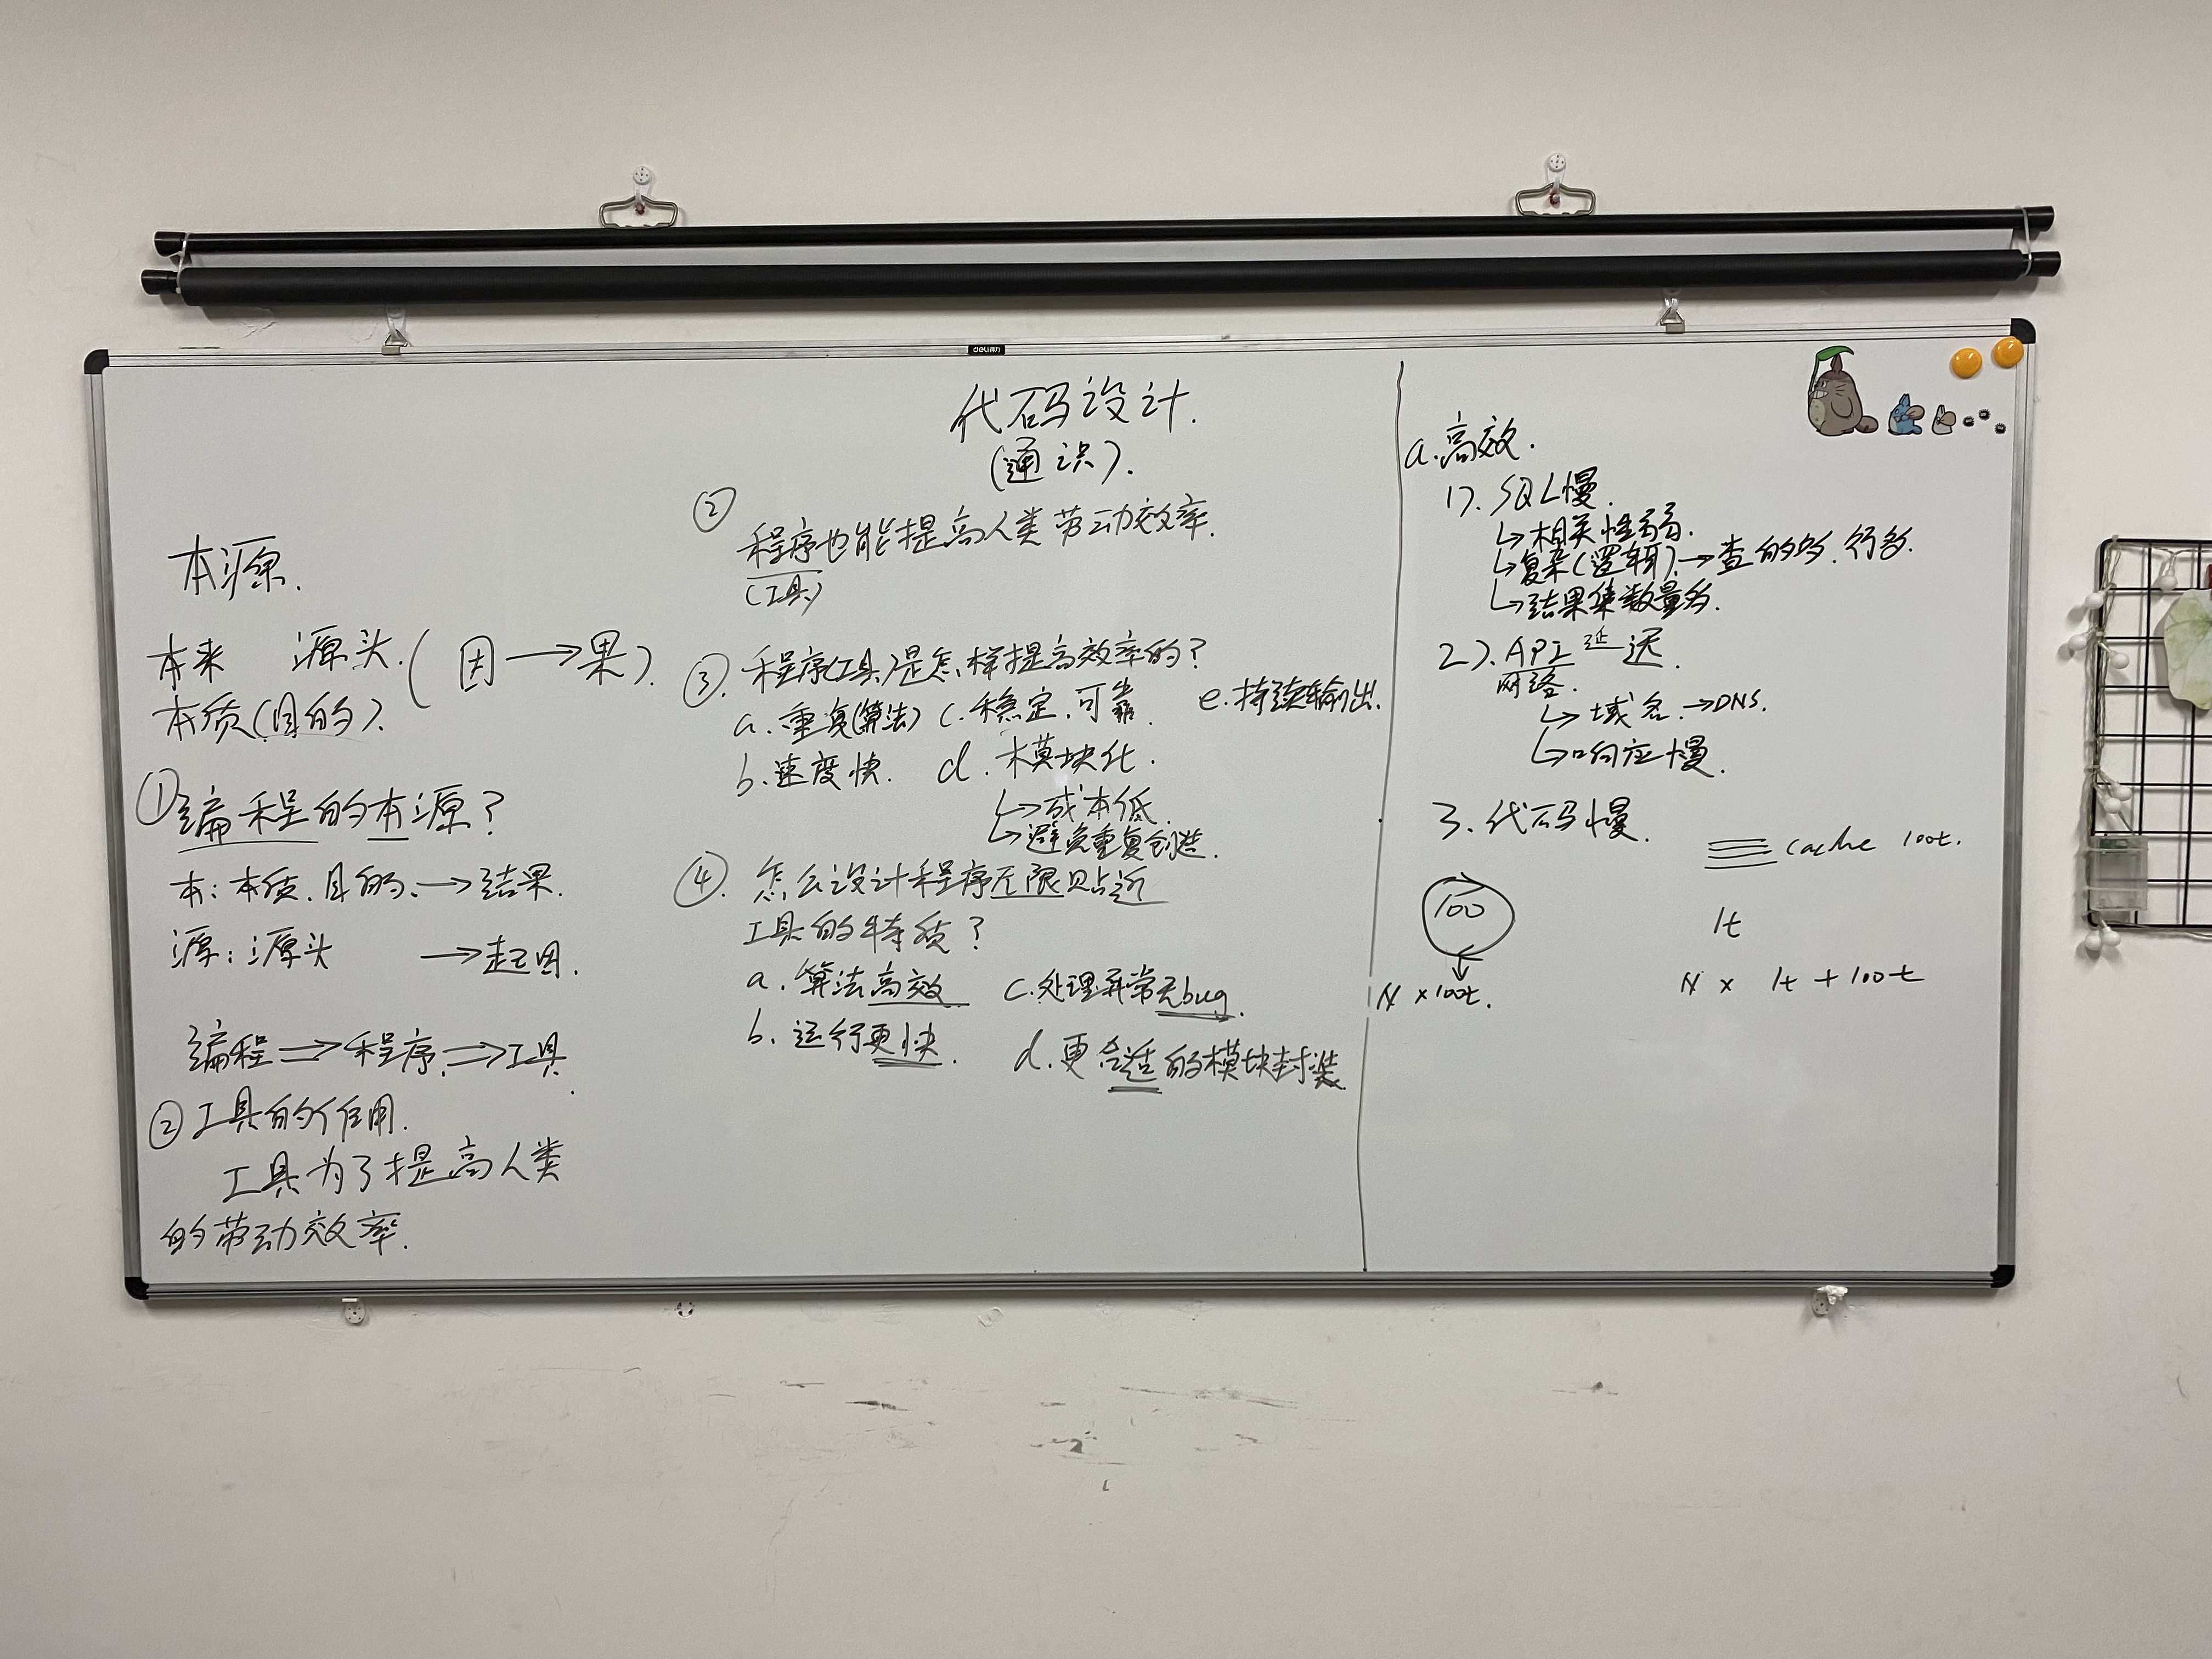 deli得力
代码设计.
(通识).
本源.
本来 源头.(因→果).
本质(目的).
①编程的本源?
本:本质.目的.→结果.
源:源头 →起因.
编程⇒程序.⇒工具.
②工具的作用.
工具为了提高人类
的劳动效率.
②
程序也能提高人类劳动效率.
(工具)
③.程序(工具)是怎样提高效率的?
a.重复(算法) c.稳定.可靠. e.持续输出.
b.速度快. d.模块化.
↳成本低.
↳避免重复创造.
④.怎么设计程序无限贴近
工具的特质?
a.算法高效 c.处理异常无bug.
b.运行更快. d.更合适的模块封装.
a.高效.
1).SQL慢.
↳相关性弱.
↳复杂(逻辑).→查的多.行多.
↳结果集数量多.
2).API延迟.
网络.
↳域名.→DNS.
↳响应慢.
3.代码慢.
cache 100t.
100
1t
N×100t.
N × 1t + 100t